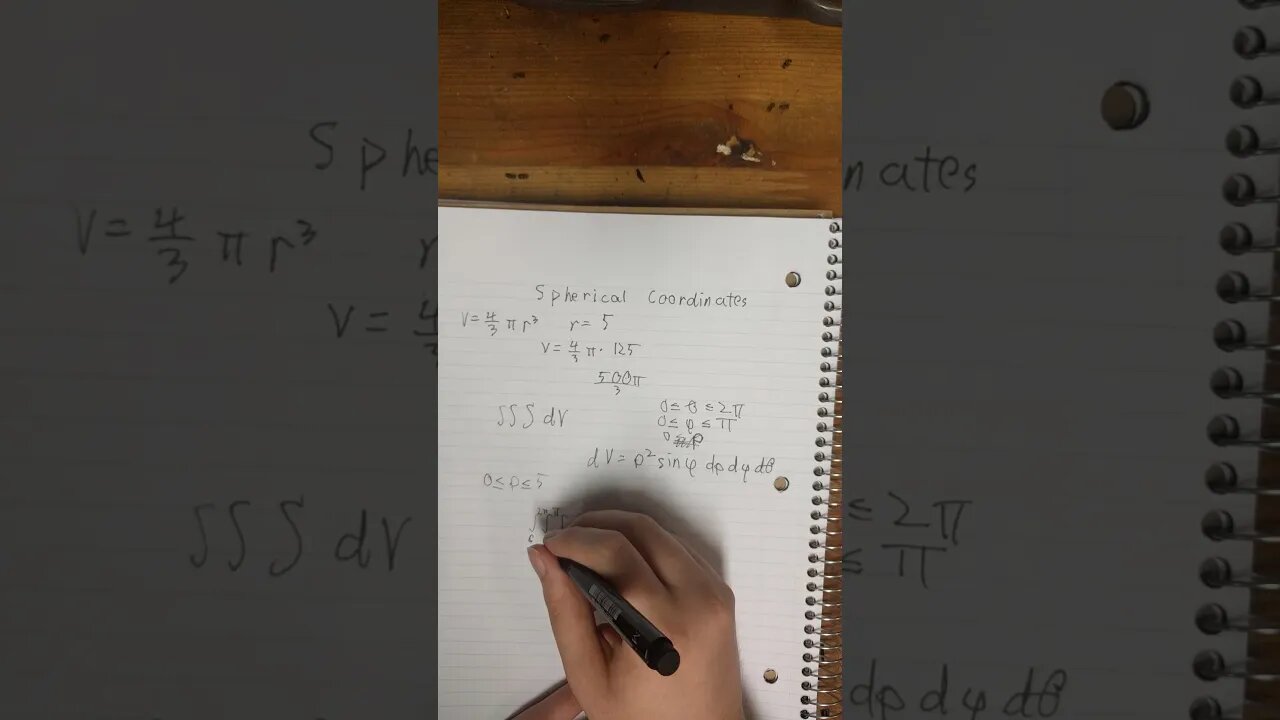 Spherical Coordinates
V = 4/3 π r³ r = 5
V = 4/3 π · 125
500π/3
∫∫∫ dV 0 ≤ θ ≤ 2π
0 ≤ φ ≤ π
0 ≤
dV = ρ² sin φ dρ dφ dθ
0 ≤ ρ ≤ 5
∫ 2π 0 ∫ π